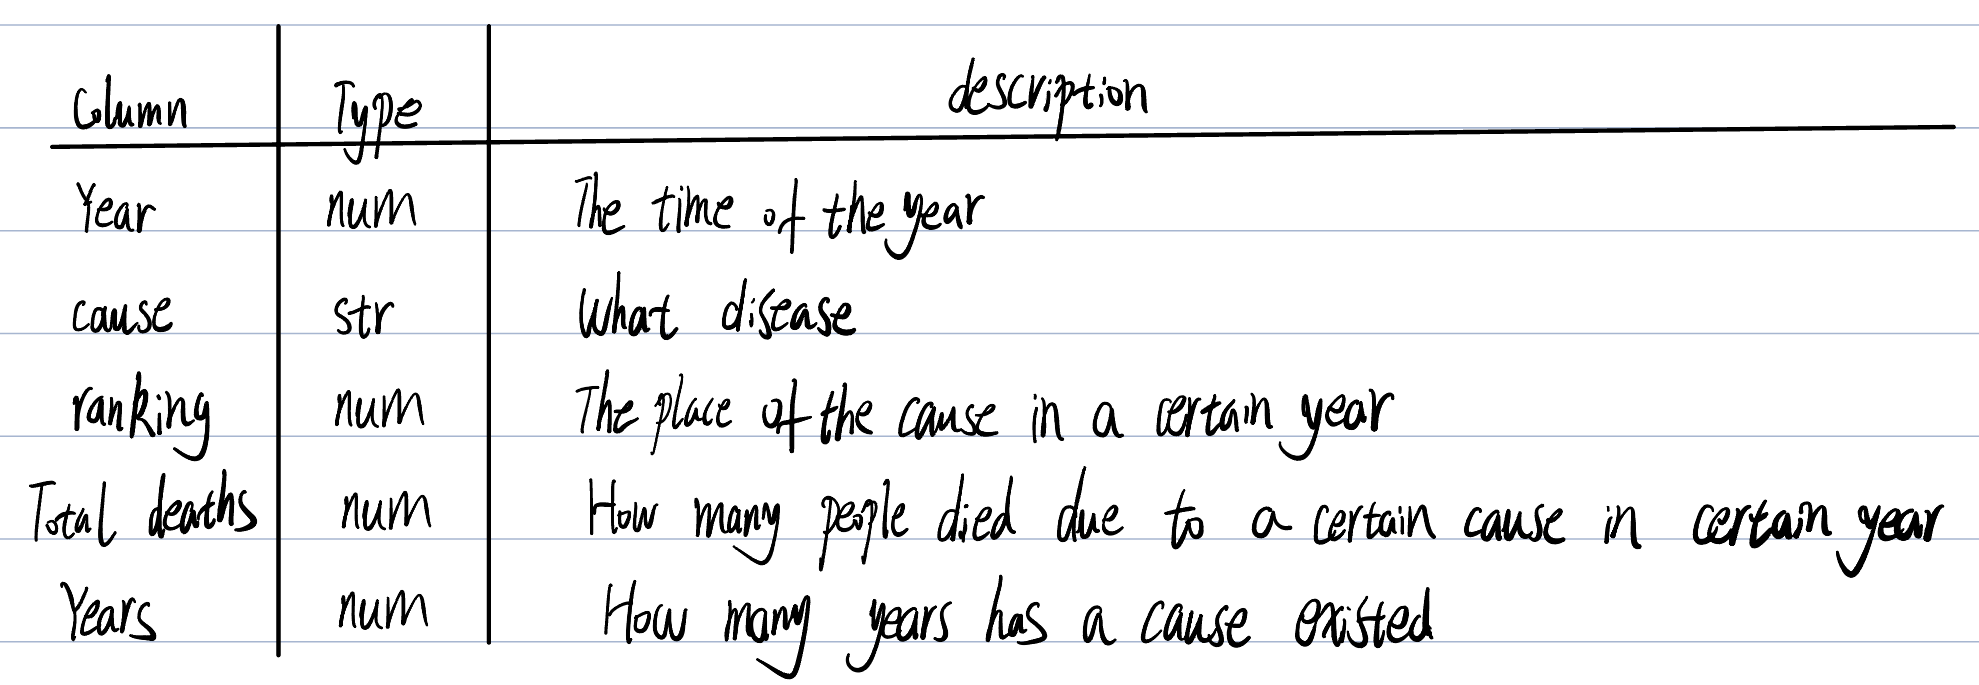 Column Type description
Year num The time of the year
cause str What disease
ranking num The place of the cause in a certain year
Total deaths num How many people died due to a certain cause in certain year
Years num How many years has a cause existed